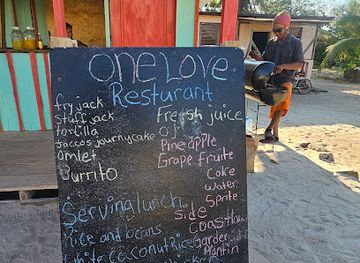 One Love
Resturant
fry jack
Stuff jack
tortilla
Jaccos journycake
Omlet
Burrito
Fresh juice
OJ
Pineapple
Grape fruite
Coke
water
Sprite
Serving lunch
Rice and beans
white coconut rice
Side
Coastlaw
Garden
Plantin